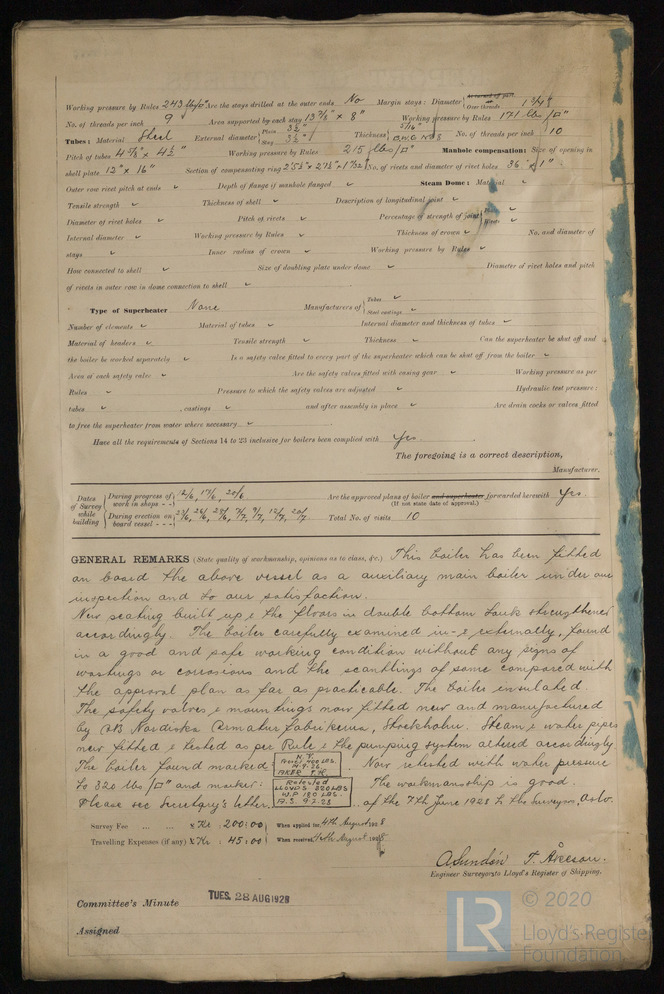 Working pressure by Rules 243 lb/□" Are the stays drilled at the outer ends No Margin stays: Diameter { Over threads 1 3/4"
No. of threads per inch 9 Area supported by each stay 13 7/8" x 8" Working pressure by Rules 171 lb/□"
Tubes: Material Steel External diameter { Plain 3 1/2" Stay 3 1/2" Thickness { 5/16" B.W.G. No 8 No. of threads per inch 10
Pitch of tubes 4 5/8" x 4 1/2" Working pressure by Rules 215 lbs/□" Manhole compensation: Size of opening in
shell plate 12" x 16" Section of compensating ring No. of rivets and diameter of rivet holes 36 x 1"
Outer row rivet pitch at ends ✓ Depth of flange if manhole flanged ✓ Steam Dome: Material ✓
Tensile strength ✓ Thickness of shell ✓ Description of longitudinal joint ✓
Diameter of rivet holes ✓ Pitch of rivets ✓ Percentage of strength of joint { Plate ✓ Rivets ✓
Internal diameter ✓ Working pressure by Rules ✓ Thickness of crown ✓ No. and diameter of
stays ✓ Inner radius of crown ✓ Working pressure by Rules ✓
How connected to shell ✓ Size of doubling plate under dome ✓ Diameter of rivet holes and pitch
of rivets in outer row in dome connection to shell ✓
Type of Superheater None Manufacturers of { Tubes ✓ Steel castings ✓
Number of elements ✓ Material of tubes ✓ Internal diameter and thickness of tubes ✓
Material of headers ✓ Tensile strength ✓ Thickness ✓ Can the superheater be shut off and
the boiler be worked separately ✓ Is a safety valve fitted to every part of the superheater which can be shut off from the boiler ✓
Area of each safety valve ✓ Are the safety valves fitted with easing gear ✓ Working pressure as per
Rules ✓ Pressure to which the safety valves are adjusted ✓ Hydraulic test pressure:
tubes ✓ castings ✓ and after assembly in place ✓ Are drain cocks or valves fitted
to free the superheater from water where necessary ✓
Have all the requirements of Sections 14 to 23 inclusive for boilers been complied with Yes
The foregoing is a correct description,
Manufacturer.
Dates of Survey while building { During progress of work in shops - - } 12/6, 17/6, 20/6 Are the approved plans of boiler and superheater forwarded herewith Yes.
(If not state date of approval.)
{ During erection on board vessel - - - } 23/6, 26/6, 29/6, 7/7, 9/7, 12/7, 20/7 Total No. of visits 10
GENERAL REMARKS (State quality of workmanship, opinions as to class, &c.) This boiler has been fitted
on board the above vessel as a auxiliary main boiler under our
inspection and to our satisfaction.
New seating built up & the floors in double bottom tank strengthened
accordingly. The boiler carefully examined in- & externally, found
in a good and safe working condition without any signs of
wastings or corrosions and the scantlings of same compared with
the approval plan as far as practicable. The boiler insulated.
The safety valves & mountings now fitted new and manufactured
by A/B Nordiska Armaturfabrikerna, Stockholm. Steam & water pipes
new fitted & tested as per Rule & the pumping system altered accordingly
The boiler found marked: Now retested with water pressure
AKER T.K.
to 320 lbs/□" and marked: Retested LLOYDS 320 LBS. W.P. 180 LBS. A.S. 9.7.28 The workmanship is good.
Please see Secretary's letter of the 7th June 1928 to the Surveyors, Oslo.
Survey Fee ... ... Kr : 200:00 When applied for, 4th August 1928
Travelling Expenses (if any) Kr : 45:00 When received, 4th August 1928
A Sundén T. Åkeson.
Engineer Surveyors to Lloyd's Register of Shipping.
Committee's Minute TUES. 28 AUG 1928
Assigned
LR © 2020
Lloyd's Register
Foundation